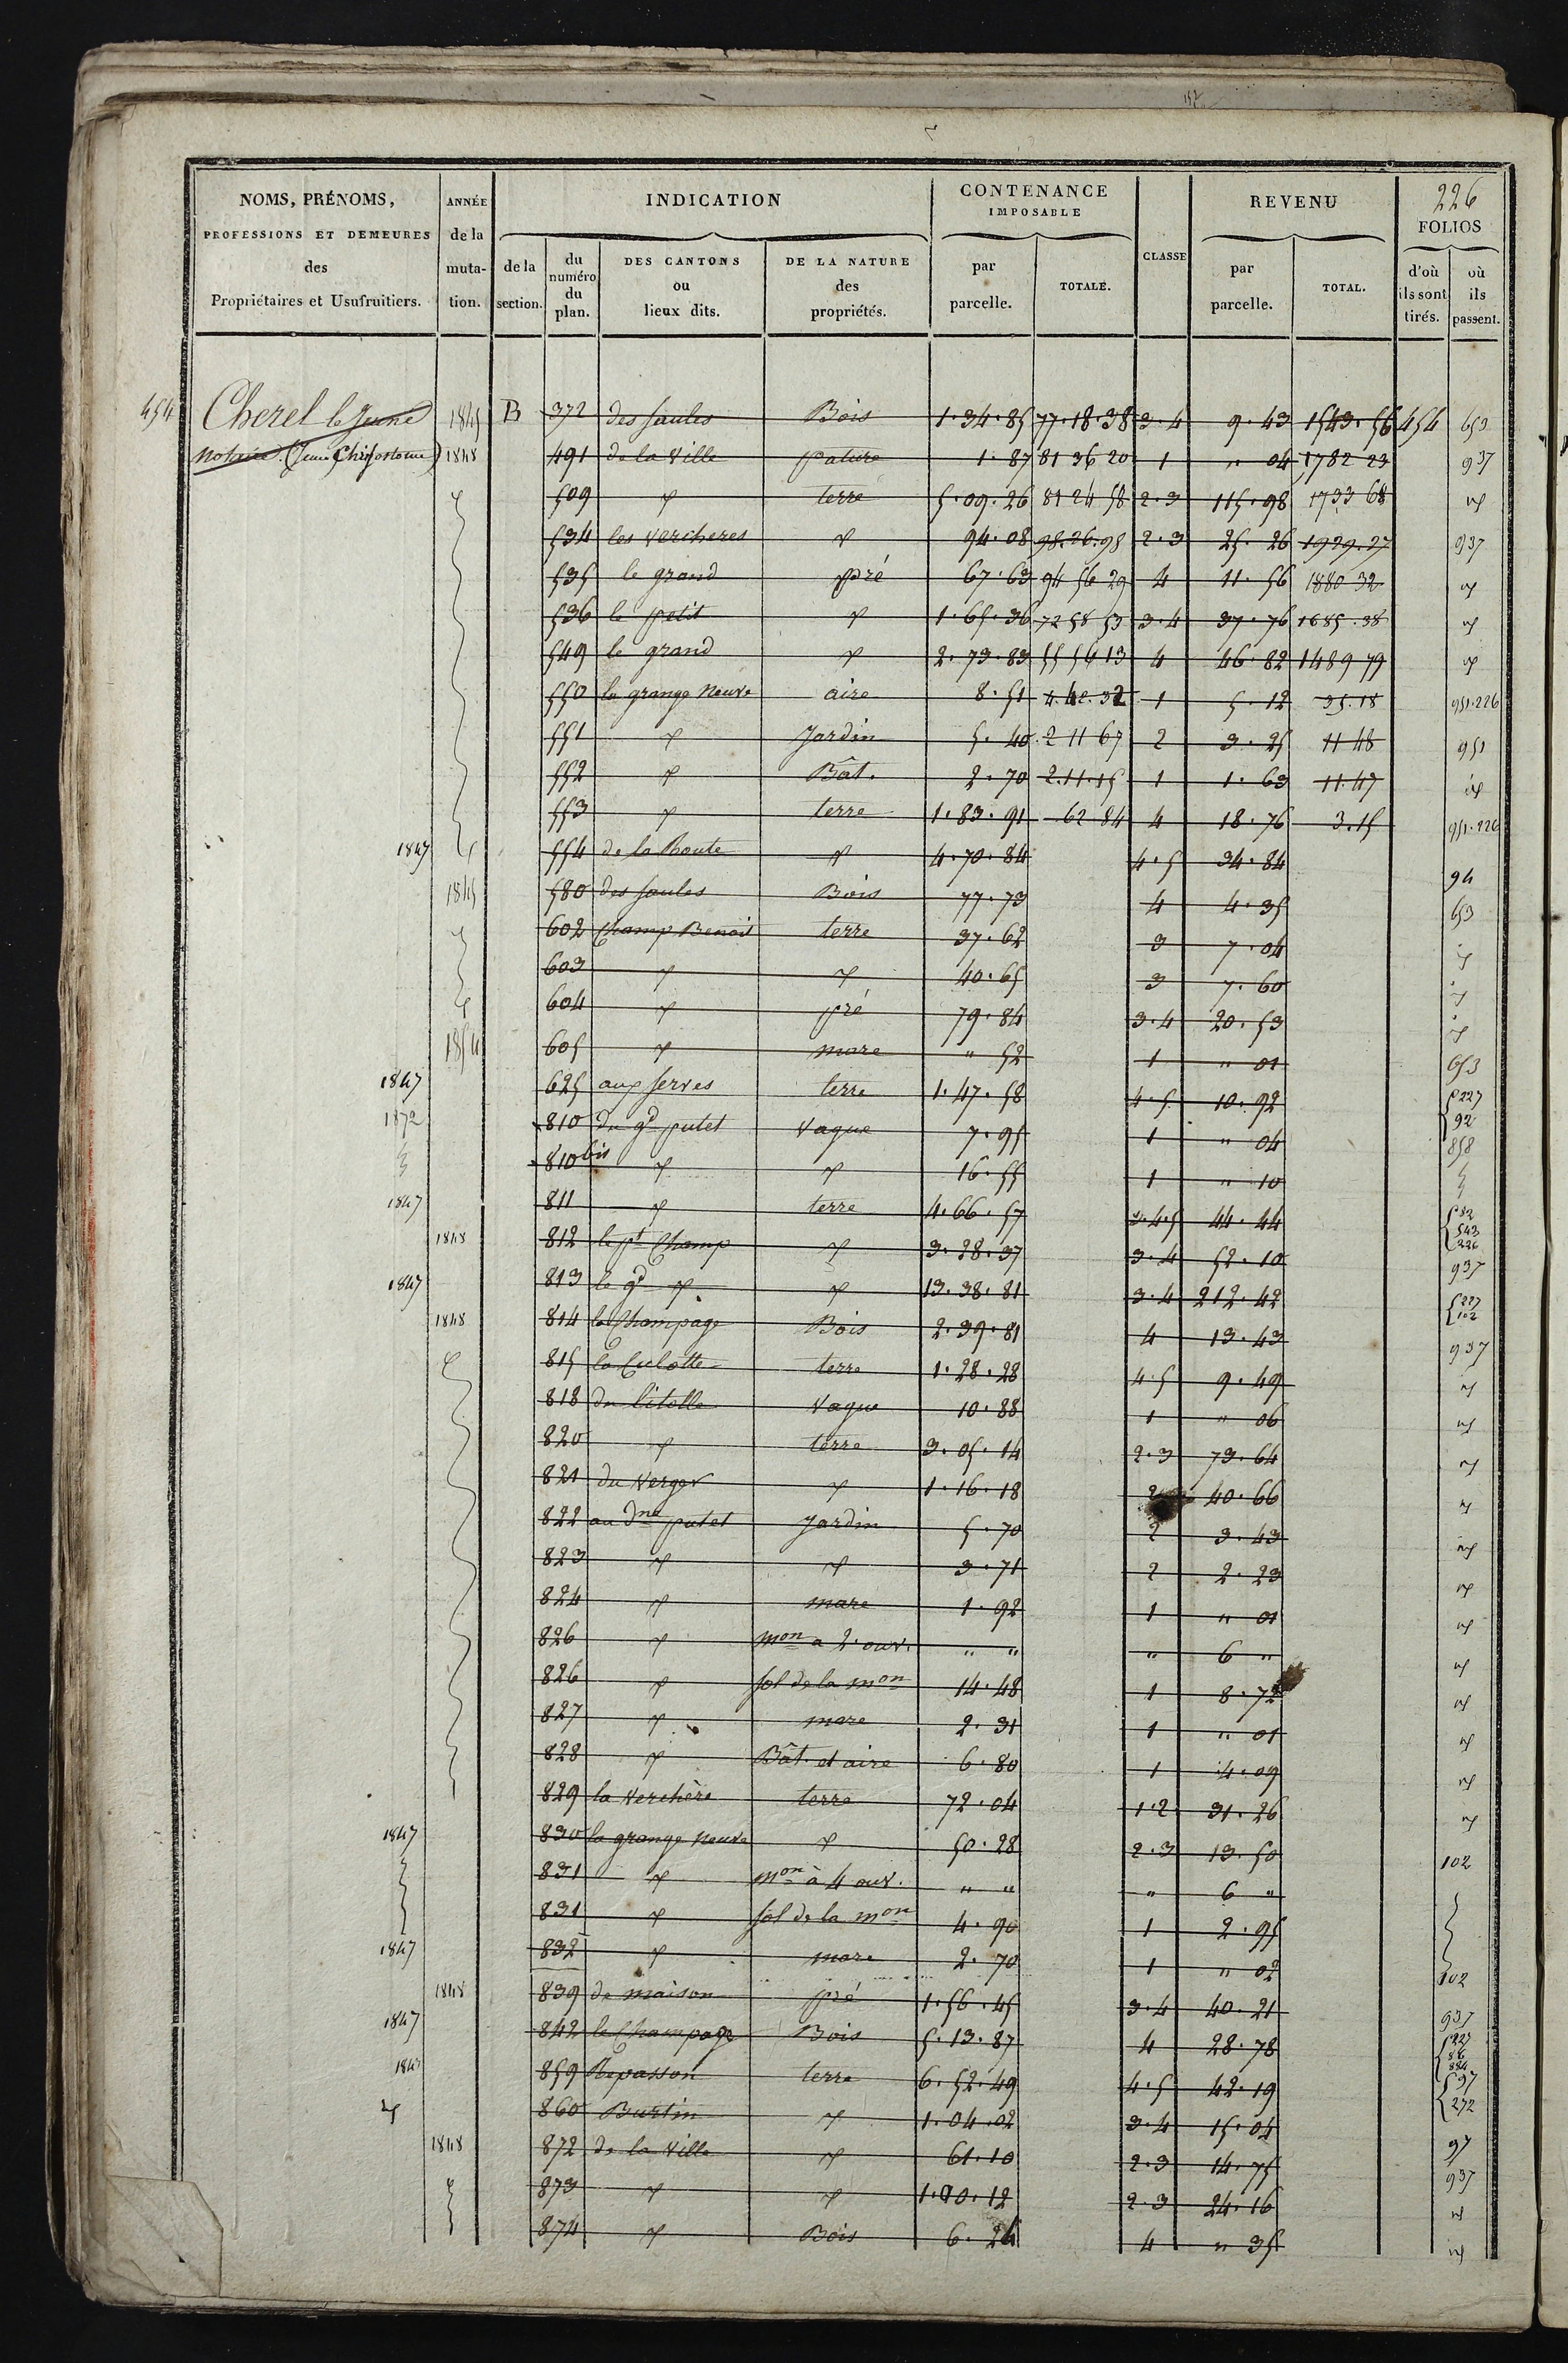 152
226
NOMS, PRÉNOMS, PROFESSIONS ET DEMEURES des Propriétaires et Usufruitiers.
ANNÉE de la mutation.
INDICATION
de la section.
du numéro du plan.
DES CANTONS ou lieux dits.
DE LA NATURE des propriétés.
CONTENANCE IMPOSABLE
par parcelle.
TOTALE.
CLASSE
REVENU
par parcelle.
TOTAL.
FOLIOS
d'où ils sont tirés.
où ils passent.
454 Cherel le Jeune 1845 B 372 des Saules Bois 1.34.85 77.18.38 3.4 9.43 1543.56 454 653
notaire (Jean Chrisostome) 1848 491 de la Ville pature 1.87 81 36 20 1 " 04 1782 23 937
509 d° terre 5.09.26 81 24 58 2.3 115.98 1733 68 d°
534 les vercheres d° 94.08 98.26.95 2.3 25.26 1929.27 937
535 le grand pré 67.63 94 56 29 4 11.56 1880 32 d°
536 le petit d° 1.65.36 72 58 53 3.4 37.76 1685.38 d°
549 le grand d° 2.73.83 55 56 13 4 46.82 1489 79 d°
550 la grange neuve aire 8.51 4.42.32 1 5.12 35.18 951.226
551 d° Jardin 5.40 2 11 67 2 3.25 11 48 951
552 d° Bât. 2.70 2.11.15 1 1.63 11.47 d°
553 d° terre 1.83.91 62 84 4 18.76 3.15 951.226
1847 554 de la Route d° 4.70.84 4.5 34.84 94
1845 580 des Saules Bois 77.73 4 4.35 653
602 Champ Benoit terre 37.62 3 7.04 d°
603 d° d° 40.65 3 7.60 d°
604 d° pré 79.84 3.4 20.53 d°
1854 605 d° mare " 52 1 " 01 653
1847 625 aux Serves terre 1.47.58 4.5 10.92 227 92
1872 810 du gd putet vague 7.95 1 " 04 858
810 bis d° d° 16.55 1 " 10
1847 811 d° terre 4.66.57 3.4.5 44.44 82 543 226
1848 812 le pt Champ d° 3.28.37 3.4 52.10 937
1847 813 le gd d° d° 13.38.81 3.4 212.42 227 102
1848 814 le Champage Bois 2.39.81 4 13.43 937
815 la Culotte terre 1.28.28 4.5 9.49 d°
818 du litolle vague 10.88 1 " 06 d°
820 d° terre 3.05.14 2.3 73.64 d°
821 du Verger d° 1.16.18 2 40.66 d°
822 au dne putet Jardin 5.70 2 3.43 d°
823 d° d° 3.71 2 2.23 d°
824 d° mare 1.92 1 " 01 d°
826 d° mon a 2 ouv. " " " 6 " d°
826 d° sol de la mon 14.48 1 8.72 d°
827 d° mare 2.31 1 " 01 d°
828 d° Bât. et aire 6.80 1 4.09 d°
829 la Verchère terre 72.04 1.2 31.26 d°
1847 830 la grange neuve d° 50.28 2.3 13.50 102
831 d° mon à 4 ouv. " " " 6 "
831 d° sol de la mon 4.90 1 2.95
1847 832 d° mare 2.70 1 " 02 102
1848 839 de maison pré 1.56.45 3.4 40.21 937
1847 842 le Champage Bois 5.13.87 4 28.78 227 86 884
1843 859 Repasson terre 6.52.49 4.5 42.19 97 272
d° 860 Burtin d° 1.04.02 3.4 15.04 97
1848 872 de la Ville d° 61.10 2.3 14.75 937
873 d° d° 1.00.12 2.3 24.16 d°
874 d° Bois 6.26 4 " 35 d°